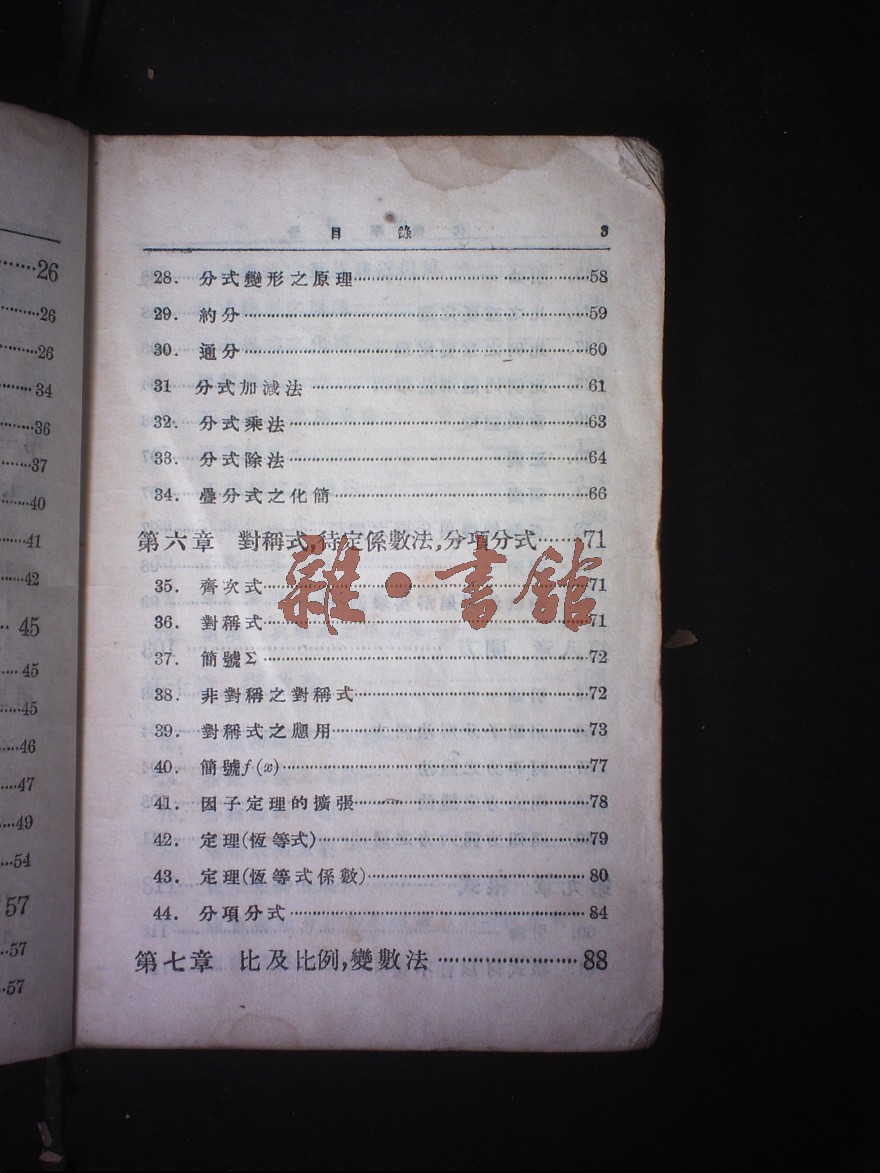 26
26
26
34
36
37
40
41
42
45
45
45
46
47
49
54
57
57
57
目 錄 3
28. 分式變形之原理……58
29. 約分……59
30. 通分……60
31 分式加減法……61
32. 分式乘法……63
33. 分式除法……64
34. 疊分式之化簡……66
第六章 對稱式,待定係數法,分項分式……71
35. 齊次式……71
36. 對稱式……71
37. 簡號Σ……72
38. 非對稱之對稱式……72
39. 對稱式之應用……73
40. 簡號f(x)……77
41. 因子定理的擴張……78
42. 定理(恆等式)……79
43. 定理(恆等式係數)……80
44. 分項分式……84
第七章 比及比例,變數法……88
雜·書館